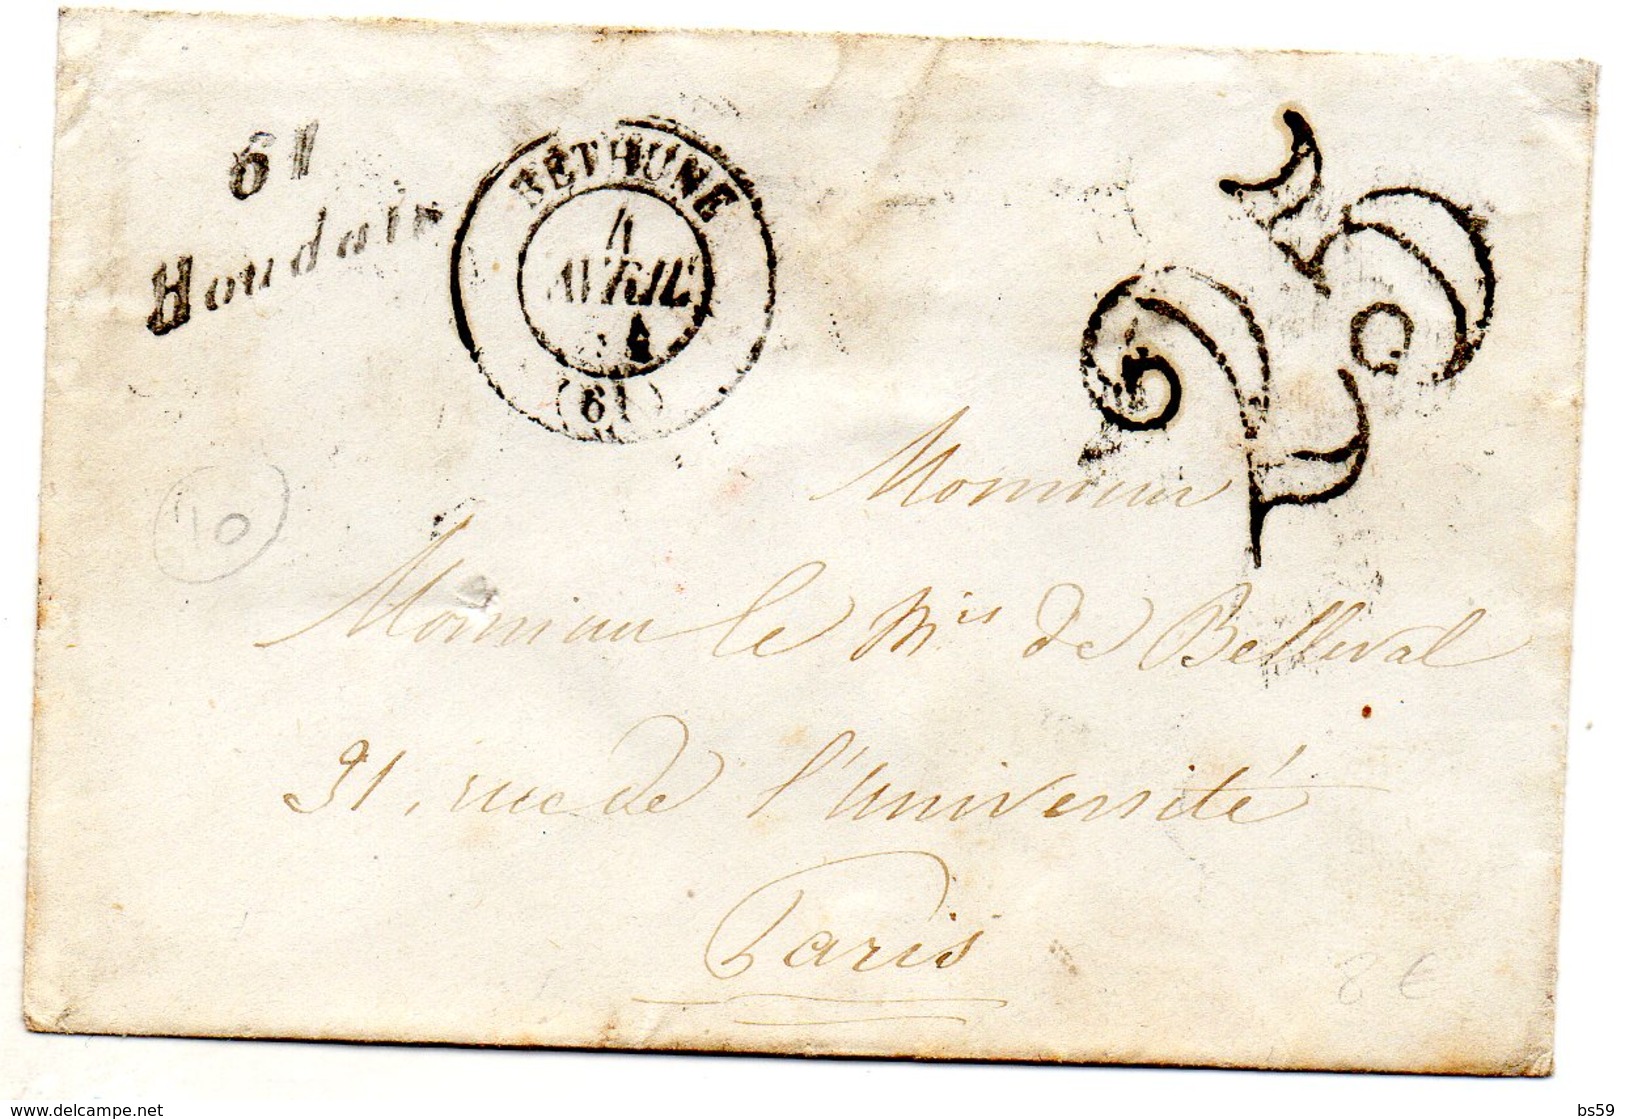 61
Houdain
BÉTHUNE
4
AVRIL
(61)
25
10
Monsieur
Monsieur le Mis de Belleval
31, rue de l'Université
Paris
8 €
www.delcampe.net
bs59